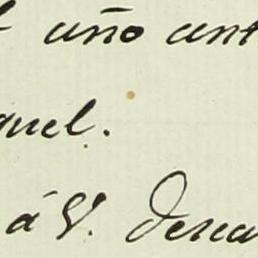 año ant
quel.
á V. Desea